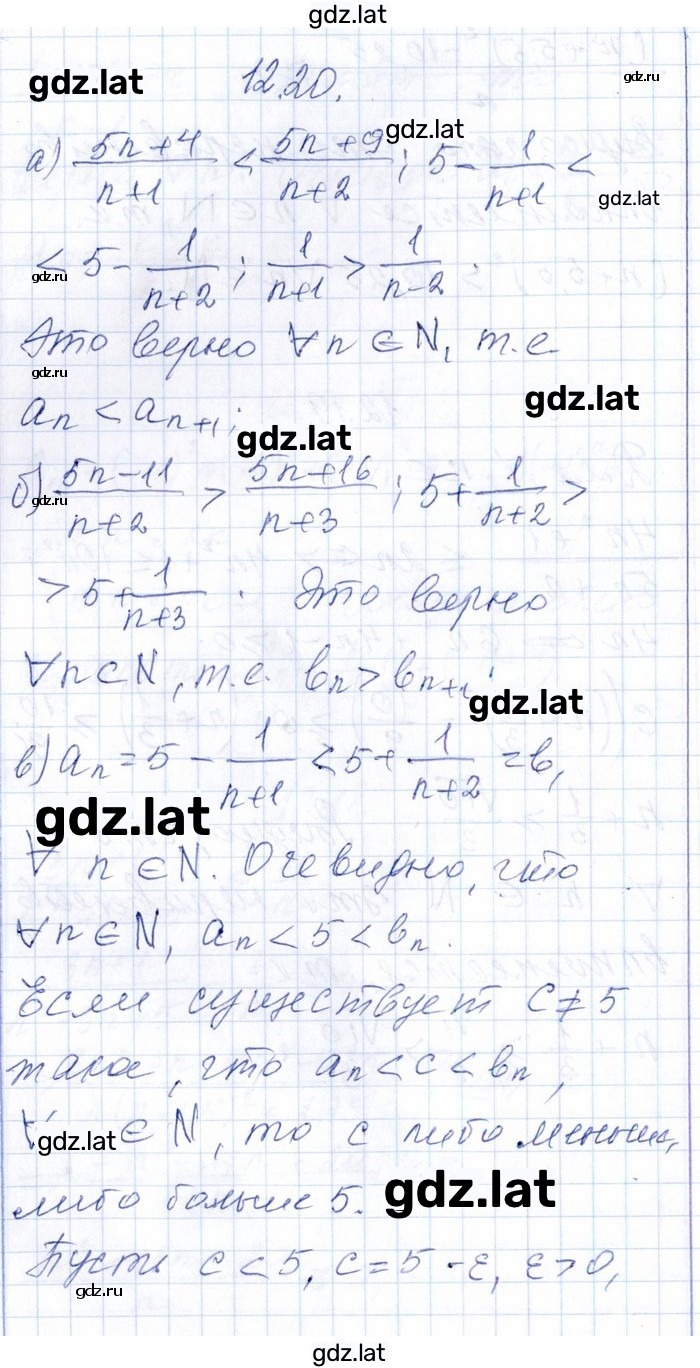 gdz.lat
12.20.
gdz.lat
gdz.ru
gdz.lat
а) (5n+4)/(n+1) < (5n+9)/(n+2) ; 5 - 1/(n+1) <
gdz.lat
< 5 - 1/(n+2) ; 1/(n+1) > 1/(n-2) .
gdz.ru
Это верно ∀n∈N, т.е
gdz.ru
aₙ < aₙ₊₁ ;
gdz.lat
gdz.lat
б) (5n-11)/(n+2) > (5n+16)/(n+3) ; 5 + 1/(n+2) >
gdz.ru
> 5 + 1/(n+3) . Это верно
∀n⊂N, т.е. bₙ > bₙ₊₁ ;
gdz.lat
в) aₙ = 5 - 1/(n+1) < 5 + 1/(n+2) = b,
gdz.lat
∀ n∈N. Очевидно, что
∀n∈N, aₙ < 5 < bₙ.
Если существует C ≠ 5
такое, что aₙ < c < bₙ,
∀ ∈ N, то с либо меньше,
gdz.lat
либо больше 5.
gdz.lat
Пусть c < 5, c = 5 - ε, ε > 0,
gdz.ru
gdz.lat